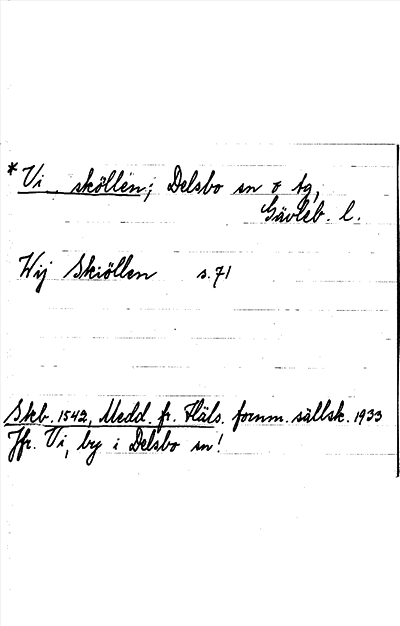 * Vi sköllen; Delsbo sn o tg,
Gävleb. l.
Wij Skiöllen s. 71
Skb. 1542, Medd. fr. Häls. fornm. sällsk. 1933
Jfr. Vi, by i Delsbo sn!